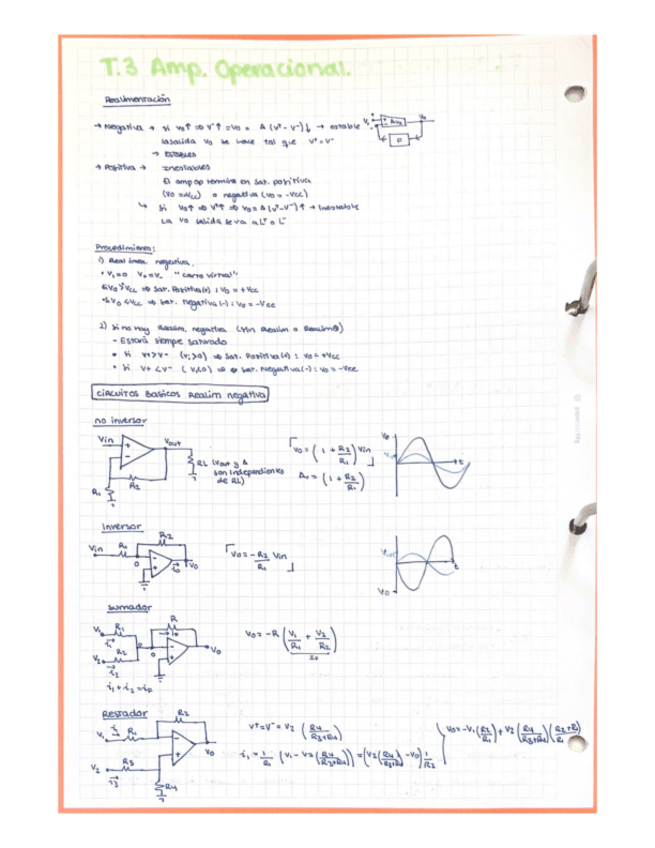 T.3 Amp. Operacional.
Realimentación
→ Negativa → si vo↑ ⇒ V⁻↑ ⇒ Vo = A (v⁺ - v⁻)↓ → estable
la salida vo se hace tal que v⁺=v⁻
→ ESTABLES
Vo
→ Positiva → Inestables
El amp op termina en sat. positiva
(vo = Vcc) o negativa (vo = -Vcc)
↳ si vo↑ ⇒ V⁺↑ ⇒ vo = A (v⁺-v⁻)↑ → Inestable
La vo salida se va a L⁺ o L⁻
Procedimiento:
1) Realimen. negativa.
• Vi=0 V+=V- "corto virtual"
⇒ sat. Positiva(+) : Vo = +Vcc
⇒ sat. negativa(-) : Vo = -Vcc
2) Si no hay Realim. negativa (sin Realim o Realim⊕)
- Estará siempre saturado
• Si V+>V- (Vi>0) ⇒ Sat. Positiva(+) : Vo = +Vcc
• Si V+<V- (Vi<0) ⇒ sat. Negativa(-) : Vo = -Vcc
CIRCUITOS BASICOS Realim negativa
no inversor
Vin
Vout
RL (Vout y A
son independientes
de RL)
R1
R2
Vo = (1 + R2/R1) Vin
A = (1 + R2/R1)
t
Inversor
Vin
R1
R2
Vo
Vo = - R2/R1 Vin
Vo
t
sumador
V1
R1
i1
V2
R2
i2
R
Vo
i1 + i2 = iF
Vo = -R (V1/R1 + V2/R2)
Restador
V1
R1
R2
V2
R3
i3
R4
Vo
V⁺=V⁻= V2 (R4/R3+R4)
i1 = 1/R1 [V1 - V2 (R4/R3+R4)] = (V2 (R4/R3+R4) - Vo) 1/R2
Vo = -V1 (R2/R1) + V2 (R4/R3+R4) (R2+R1/R1)